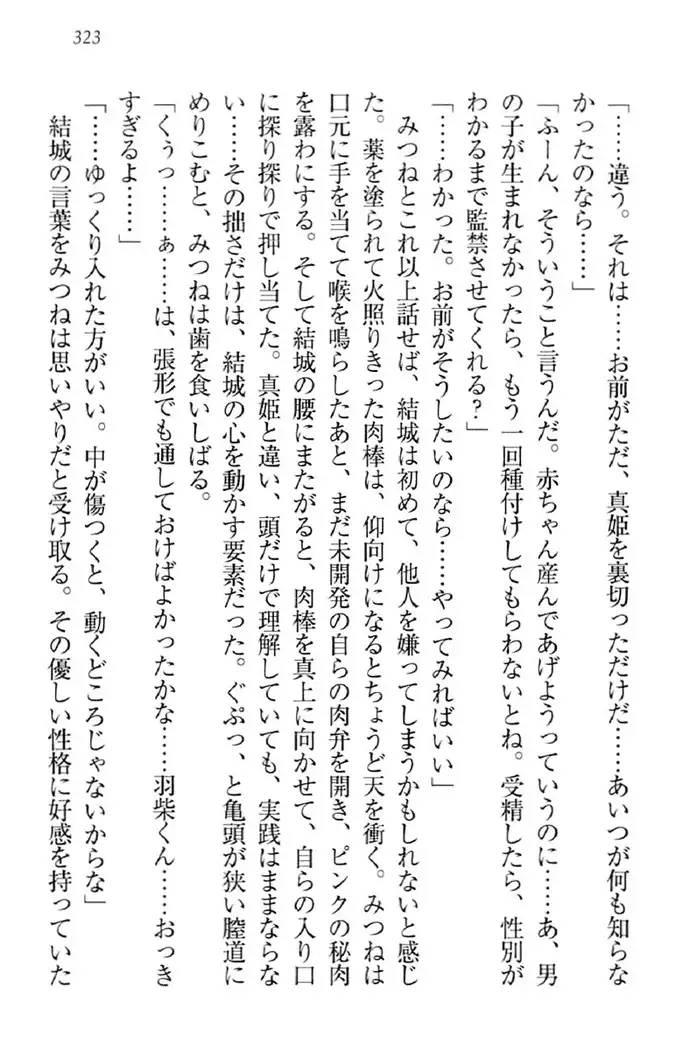 323
「……違う。それは……お前がただ、真姫を裏切っただけだ……あいつが何も知らな
かったのなら……」
「ふーん、そういうこと言うんだ。赤ちゃん産んであげようっていうのに……あ、男
の子が生まれなかったら、もう一回種付けしてもらわないとね。受精したら、性別が
わかるまで監禁させてくれる？」
「……わかった。お前がそうしたいのなら……やってみればいい」
みつねとこれ以上話せば、結城は初めて、他人を嫌ってしまうかもしれないと感じ
た。薬を塗られて火照りきった肉棒は、仰向けになるとちょうど天を衝く。みつねは
口元に手を当てて喉を鳴らしたあと、まだ未開発の自らの肉弁を開き、ピンクの秘肉
を露わにする。そして結城の腰にまたがると、肉棒を真上に向かせて、自らの入り口
に探り探りで押し当てた。真姫と違い、頭だけで理解していても、実践はままならな
い……その拙さだけは、結城の心を動かす要素だった。ぐぷっ、と亀頭が狭い膣道に
めりこむと、みつねは歯を食いしばる。
「くぅっ……ぁ……は、張形でも通しておけばよかったかな……羽柴くん……おっき
すぎるよ……」
「……ゆっくり入れた方がいい。中が傷つくと、動くどころじゃないからな」
結城の言葉をみつねは思いやりだと受け取る。その優しい性格に好感を持っていた